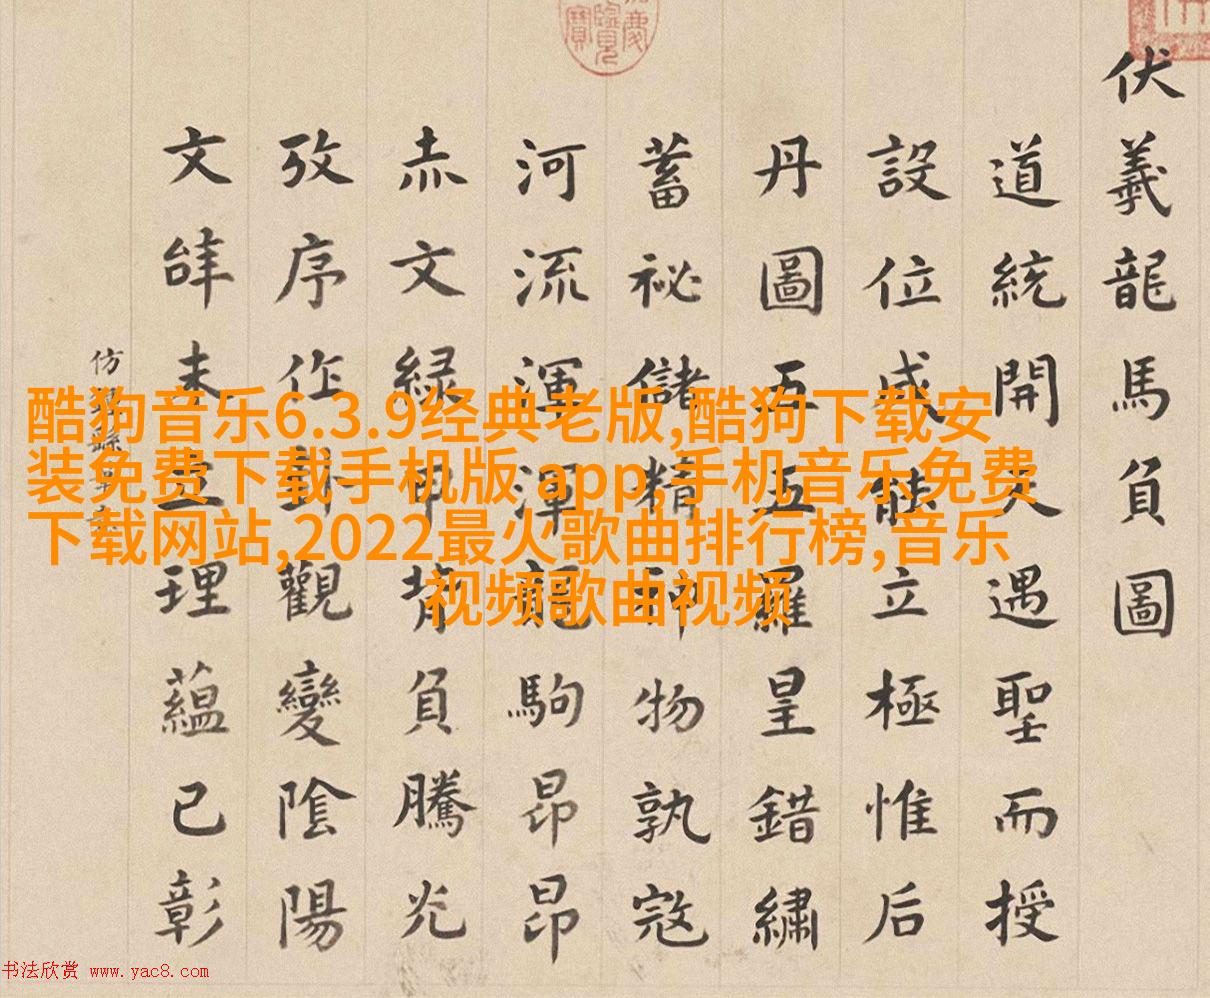 伏羲龍馬負圖
道統開天遇聖而授
設位成能立極惟后
丹圖五羅皇錯繡
蓄祕儲精神物孰寇
河流渾渾龍駒昂昂
赤文綠甲背負騰光
攷序作觀變陰陽
文未理蘊已彰
仿
酷狗音乐6.3.9经典老版,酷狗下载安
装免费下载手机版 app,手机音乐免费
下载网站,2022最火歌曲排行榜,音乐
视频歌曲视频
书法欣赏 www.yac8.com